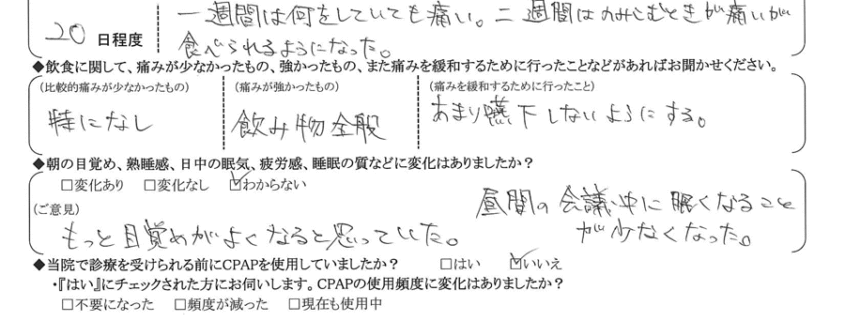 一週間は何をしていても痛い。二週間はのみこむときが痛いが
20 日程度
食べられるようになった。
◆飲食に関して、痛みが少なかったもの、強かったもの、また痛みを緩和するために行ったことなどがあればお聞かせください。
(比較的痛みが少なかったもの) (痛みが強かったもの) (痛みを緩和するために行ったこと)
特になし 飲み物全般 あまり嚥下しないようにする。
◆朝の目覚め、熟睡感、日中の眠気、疲労感、睡眠の質などに変化はありましたか?
□変化あり □変化なし ☑わからない
(ご意見)
もっと目覚めがよくなると思っていた。
昼間の会議中に眠くなること
が少なくなった。
◆当院で診療を受けられる前にCPAPを使用していましたか? □はい ☑いいえ
・『はい』にチェックされた方にお伺いします。CPAPの使用頻度に変化はありましたか?
□不要になった □頻度が減った □現在も使用中